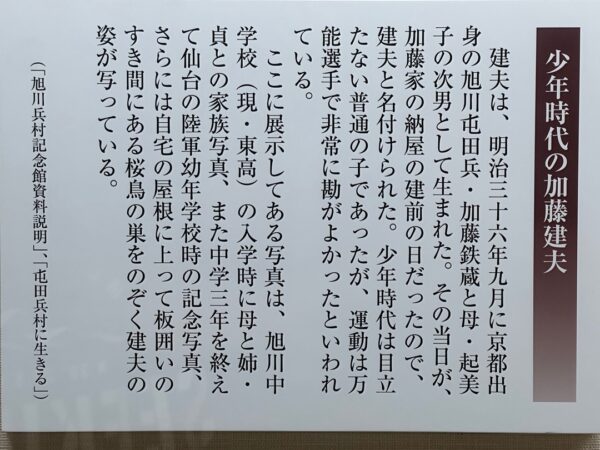 少年時代の加藤建夫
建夫は、明治三十六年九月に京都出
身の旭川屯田兵・加藤鉄蔵と母・起美
子の次男として生まれた。その当日が、
加藤家の納屋の建前の日だったので、
建夫と名付けられた。少年時代は目立
たない普通の子であったが、運動は万
能選手で非常に勘がよかったといわれ
ている。
ここに展示してある写真は、旭川中
学校（現・東高）の入学時に母と姉・
貞との家族写真、また中学三年を終え
て仙台の陸軍幼年学校時の記念写真、
さらには自宅の屋根に上って板囲いの
すき間にある桜鳥の巣をのぞく建夫の
姿が写っている。
（「旭川兵村記念館資料説明」、「屯田兵村に生きる」）